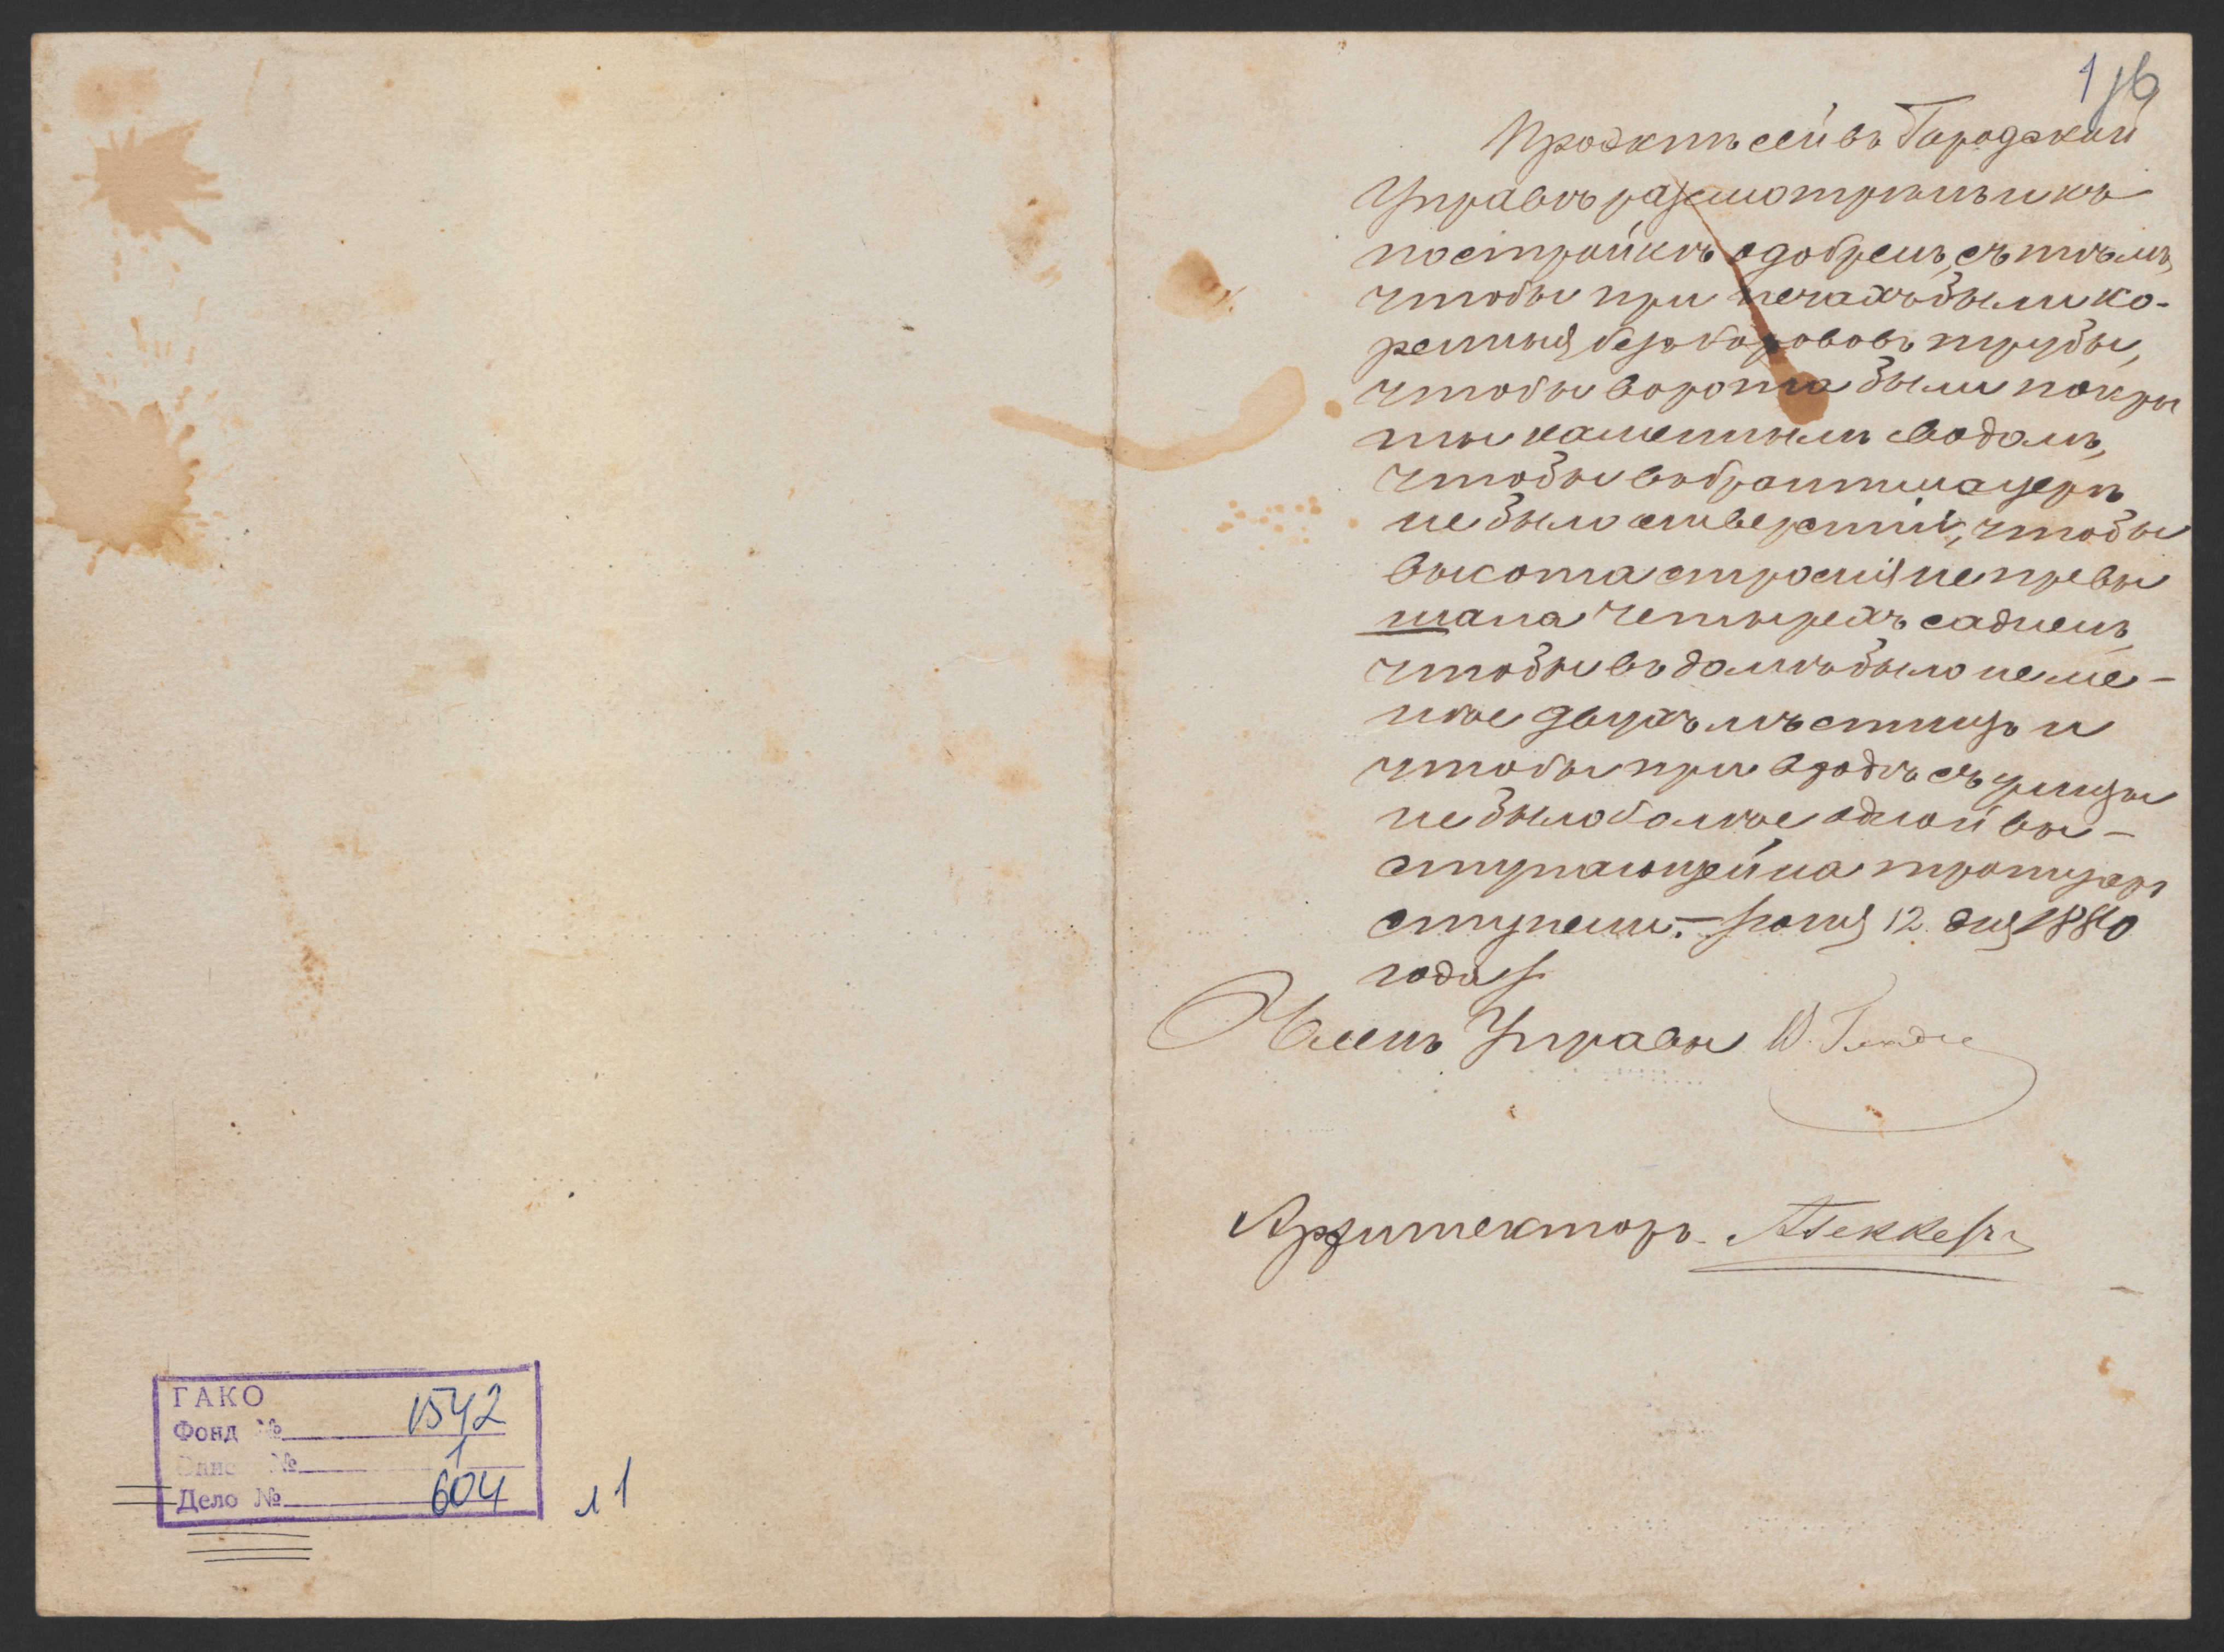 116
Проэктъ сей въ Городской
Управѣ разсмотрѣнъ и къ
постройкѣ одобренъ, съ тѣмъ,
чтобы при печахъ были ко-
ренныя безъ борововъ трубы,
чтобы ворота были покры
ты каменнымъ сводомъ,
чтобы въ брантмауерѣ
не было отверстій, чтобы
высота строенія не превы
шала четырехъ саженъ,
чтобы въ домѣ было не ме-
нѣе двухъ лѣстницъ и
чтобы при входѣ съ улицы
не было болѣе одной вы-
ступающей на тротуаръ
ступени. – 12 дня 1880
года
Членъ Управы
Архитекторъ
ГАКО
Фонд № 1542
Опись № 1
Дело № 604
л 1